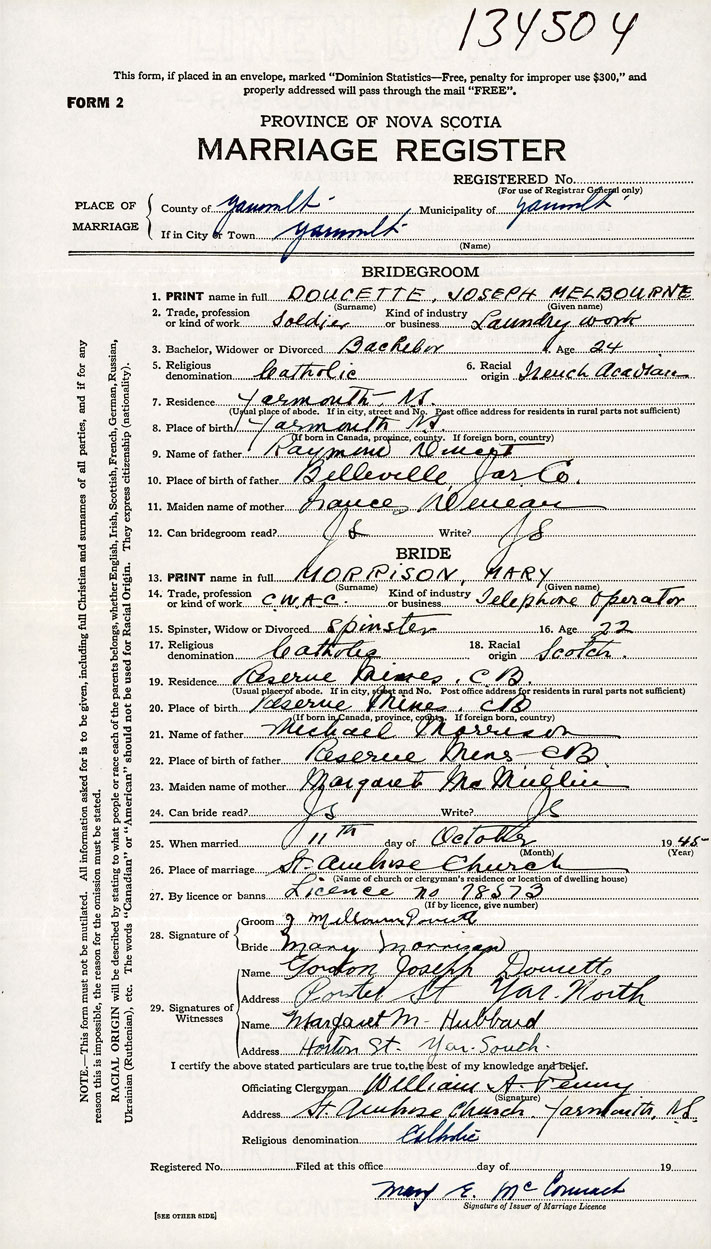 134504
This form, if placed in an envelope, marked "Dominion Statistics—Free, penalty for improper use $300," and
properly addressed will pass through the mail "FREE".
FORM 2
PROVINCE OF NOVA SCOTIA
MARRIAGE REGISTER
REGISTERED No.
(For use of Registrar General only)
PLACE OF MARRIAGE
County of Yarmouth Municipality of Yarmouth
If in City or Town Yarmouth
(Name)
BRIDEGROOM
1. PRINT name in full DOUCETTE, JOSEPH MELBOURNE
(Surname) (Given name)
2. Trade, profession or kind of work Soldier Kind of industry or business Laundry work
3. Bachelor, Widower or Divorced Bachelor 4. Age 24
5. Religious denomination Catholic 6. Racial origin French Acadian
7. Residence Yarmouth N.S.
(Usual place of abode. If in city, street and No. Post office address for residents in rural parts not sufficient)
8. Place of birth Yarmouth N.S.
(If born in Canada, province, county. If foreign born, country)
9. Name of father Raymond
10. Place of birth of father Belleville Yar Co.
11. Maiden name of mother
12. Can bridegroom read? Write?
BRIDE
13. PRINT name in full MORRISON, MARY
(Surname) (Given name)
14. Trade, profession or kind of work C.W.A.C. Kind of industry or business Telephone Operator
15. Spinster, Widow or Divorced Spinster 16. Age 22
17. Religious denomination Catholic 18. Racial origin Scotch.
19. Residence Reserve Mines, C.B.
(Usual place of abode. If in city, street and No. Post office address for residents in rural parts not sufficient)
20. Place of birth Reserve Mines. CB
(If born in Canada, province, county. If foreign born, country)
21. Name of father Michael Morrison
22. Place of birth of father Reserve Mines CB.
23. Maiden name of mother Margaret McMullin
24. Can bride read? Write?
25. When married 11th day of October 1945
(Month) (Year)
26. Place of marriage St. Ambrose Church
(Name of church or clergyman's residence or location of dwelling house)
27. By licence or banns Licence no 78573
(If by licence, give number)
28. Signature of
Groom J Melbourne
Bride Mary Morrison
29. Signatures of Witnesses
Name Gordon Joseph Doucette
Address St Yar. North
Name Margaret M. Hubbard
Address Horton St. Yar. South.
I certify the above stated particulars are true to the best of my knowledge and belief.
Officiating Clergyman William A. Penny
(Signature)
Address St. Ambrose Church. Yarmouth, N.S.
Religious denomination Catholic
Registered No. Filed at this office day of 19
Mary E. McCormack
Signature of Issuer of Marriage Licence
[SEE OTHER SIDE]
NOTE.—This form must not be mutilated. All information asked for is to be given, including full Christian and surnames of all parties, and if for any
reason this is impossible, the reason for the omission must be stated.
RACIAL ORIGIN will be described by stating to what people or race each of the parents belongs, whether English, Irish, Scottish, French, German, Russian,
Ukrainian (Ruthenian), etc. The words "Canadian" or "American" should not be used for Racial Origin. They express citizenship (nationality).